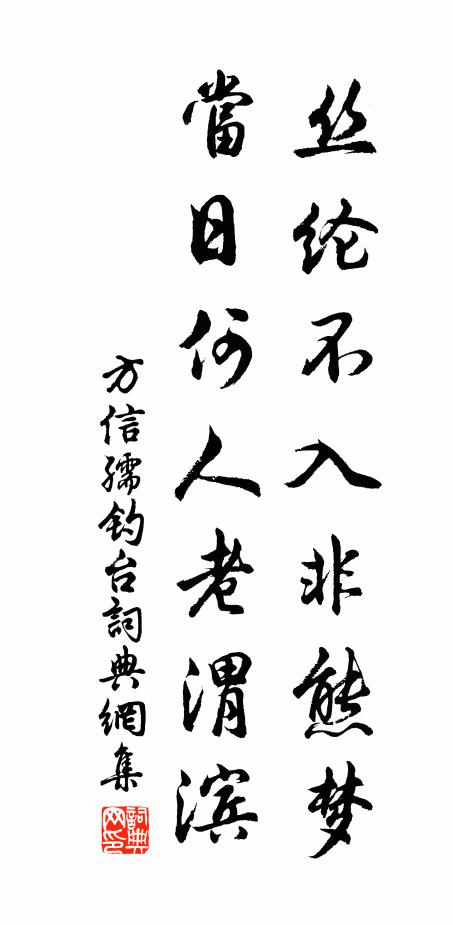 丝纶不入非熊梦
當日何人老渭滨
方信孺钓台詞典網集
詞典网印